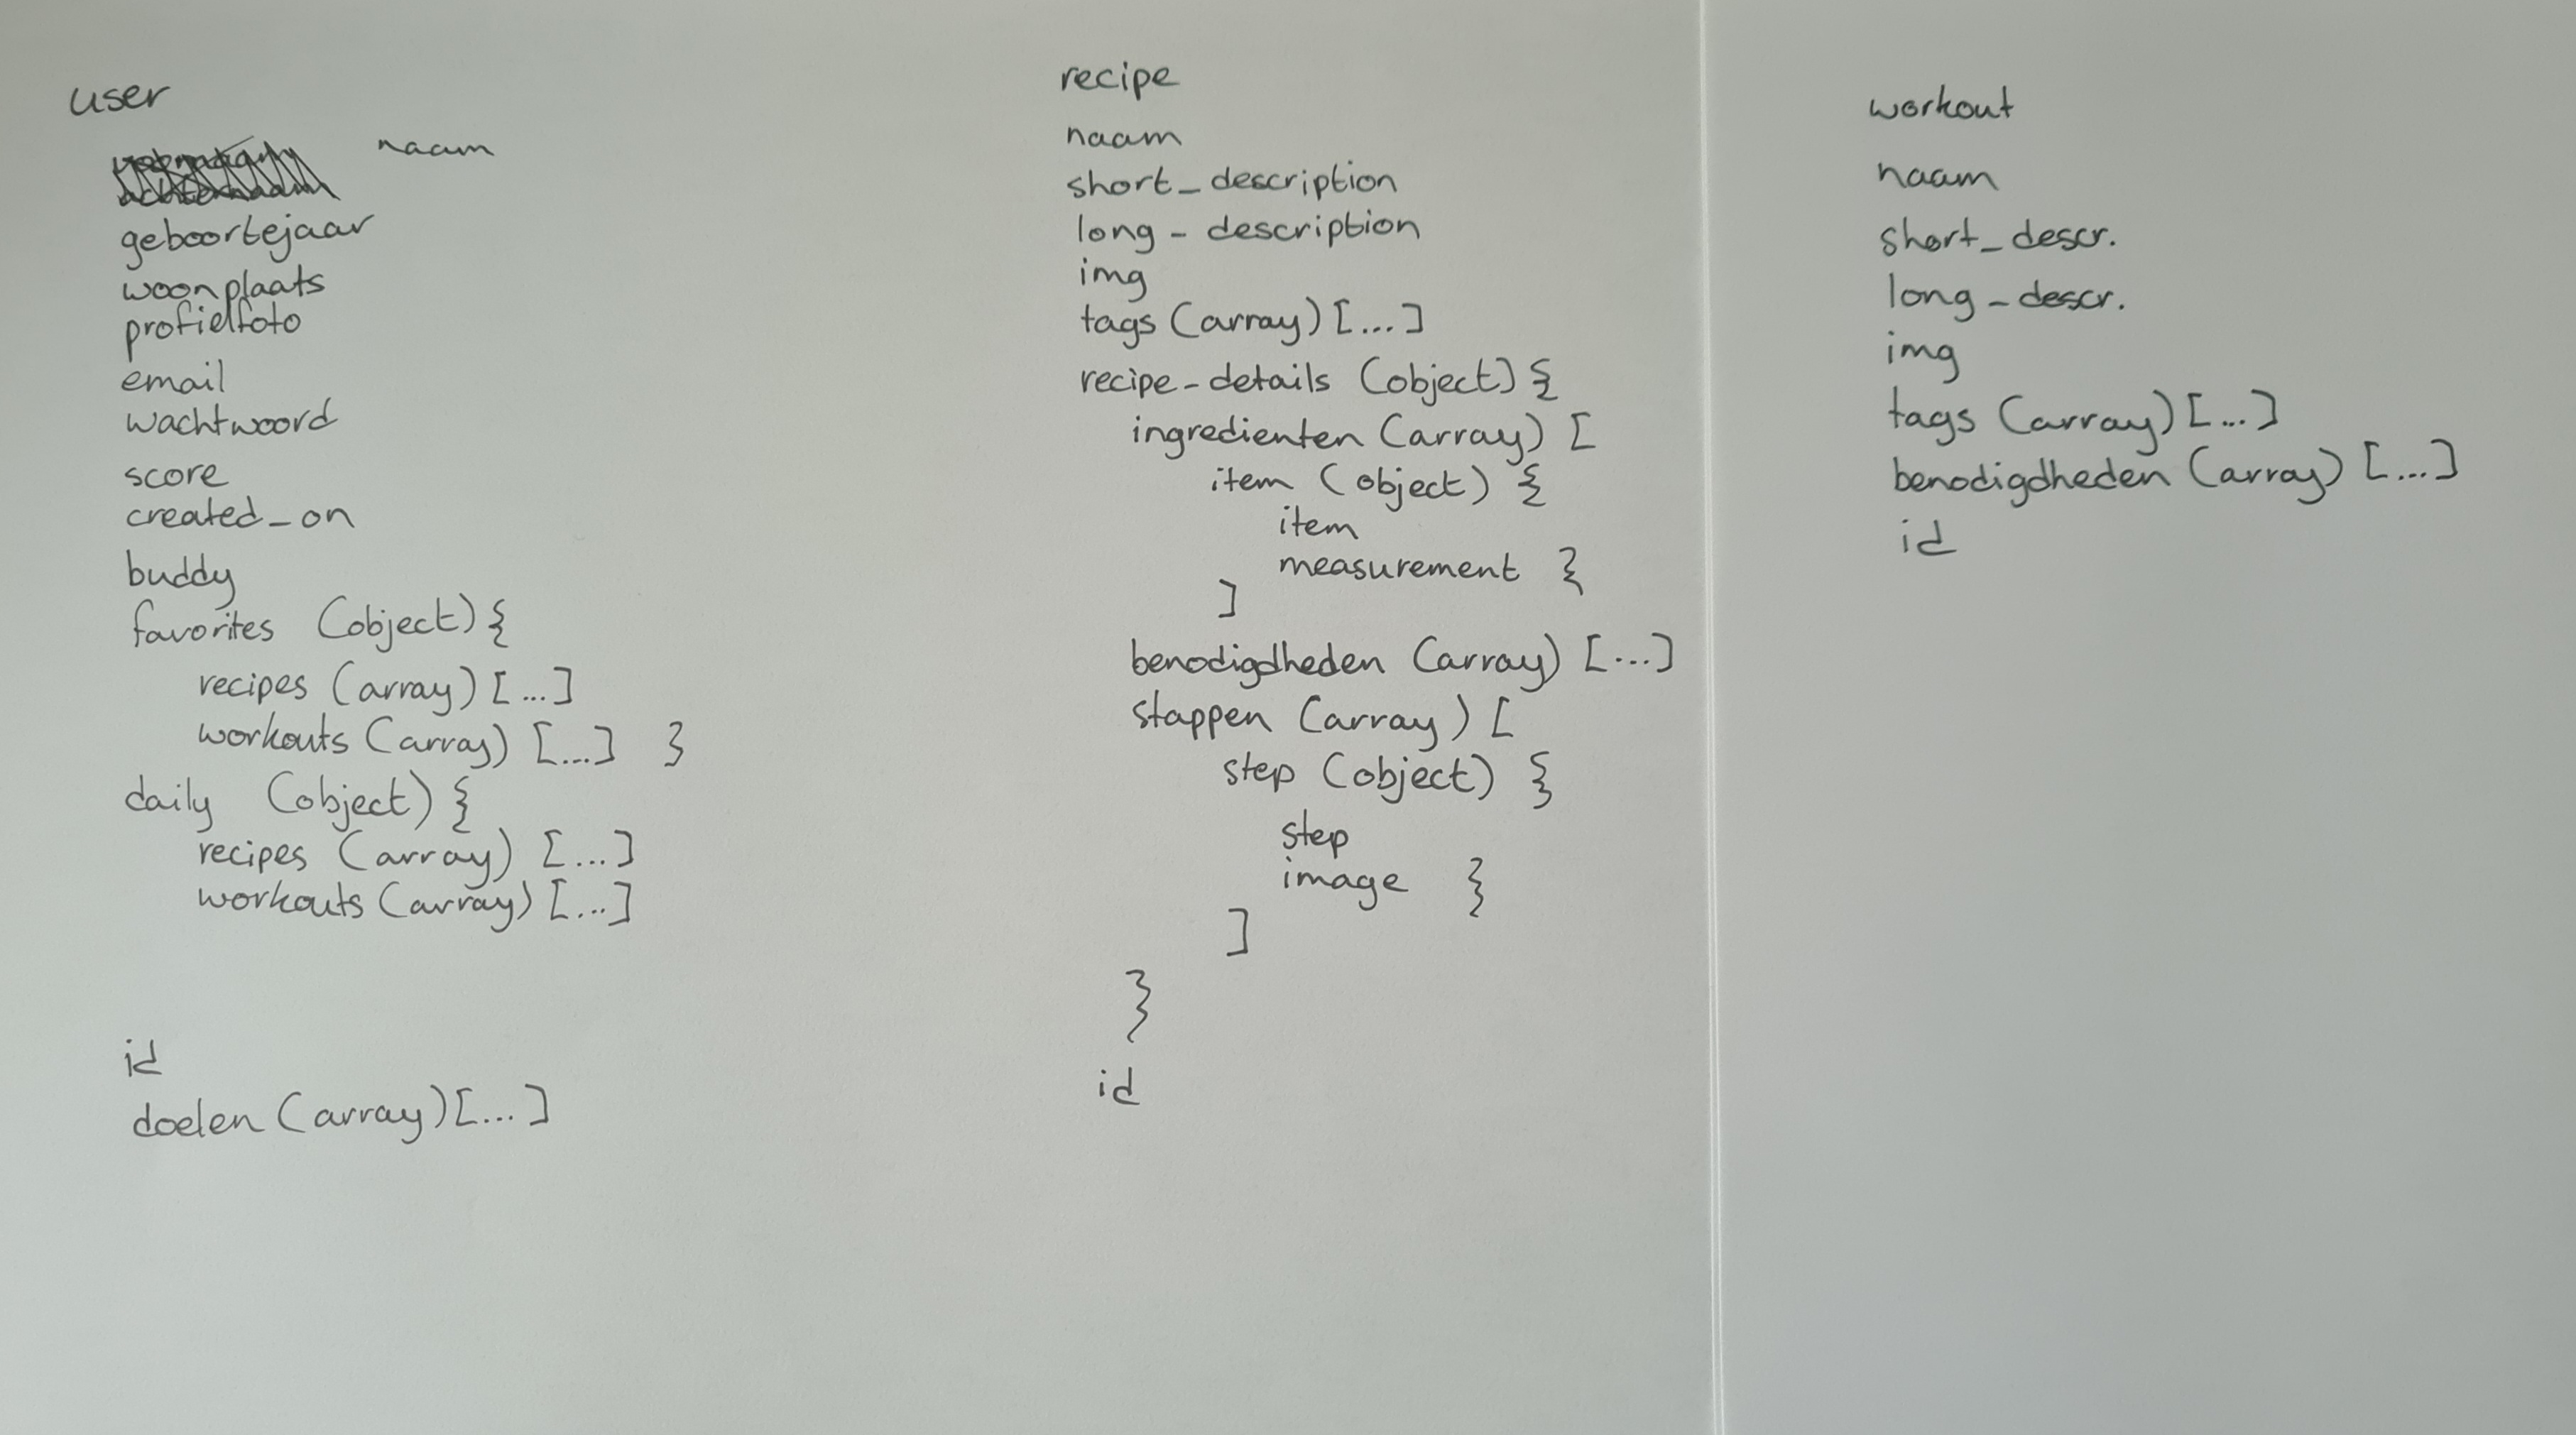 user
naam
geboortejaar
woonplaats
profielfoto
email
wachtwoord
score
created_on
buddy
favorites (object) {
recipes (array) [...]
workouts (array) [...] }
daily (object) {
recipes (array) [...]
workouts (array) [...]
id
doelen (array) [...]
recipe
naam
short_description
long_description
img
tags (array) [...]
recipe_details (object) {
ingredienten (array) [
item (object) {
item
measurement }
]
benodigdheden (array) [...]
stappen (array) [
step (object) {
step
image }
]
}
id
workout
naam
short_descr.
long_descr.
img
tags (array) [...]
benodigdheden (array) [...]
id